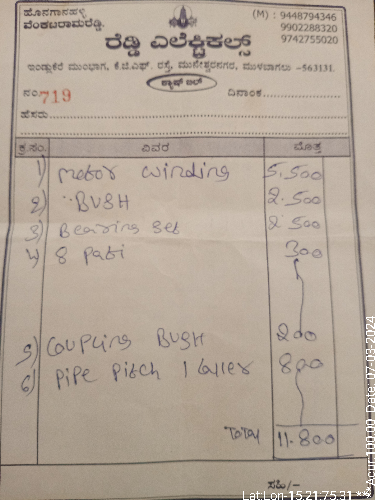 ಹೊನಗಾನಹಳ್ಳಿ
ವೆಂಕಟರಾಮರೆಡ್ಡಿ.
(M) : 9448794346
9902288320
9742755020
ರೆಡ್ಡಿ ಎಲೆಕ್ಟ್ರಿಕಲ್ಸ್
ಇಂಡ್ಲುಕೆರೆ ಮುಂಭಾಗ, ಕೆ.ಜಿ.ಎಫ್. ರಸ್ತೆ, ಮುನೇಶ್ವರನಗರ, ಮುಳಬಾಗಲು -563131.
ಕ್ಯಾಷ್ ಬಿಲ್
ನಂ. 719 ದಿನಾಂಕ
ಹೆಸರು
ಕ್ರ.ಸಂ. ವಿವರ ಮೊತ್ತ
1) Motor winding 5.500
2) " BUSH 2.500
3) Bearing Set 2.500
4) 8 Patti 300
5) COUPLing BUSH 200
6) PiPe Pitch 1 800
TOTAL 11.800
ಸಹಿ/-
LatLon-15217531**Acur:100.00 Date: 07-03-2024